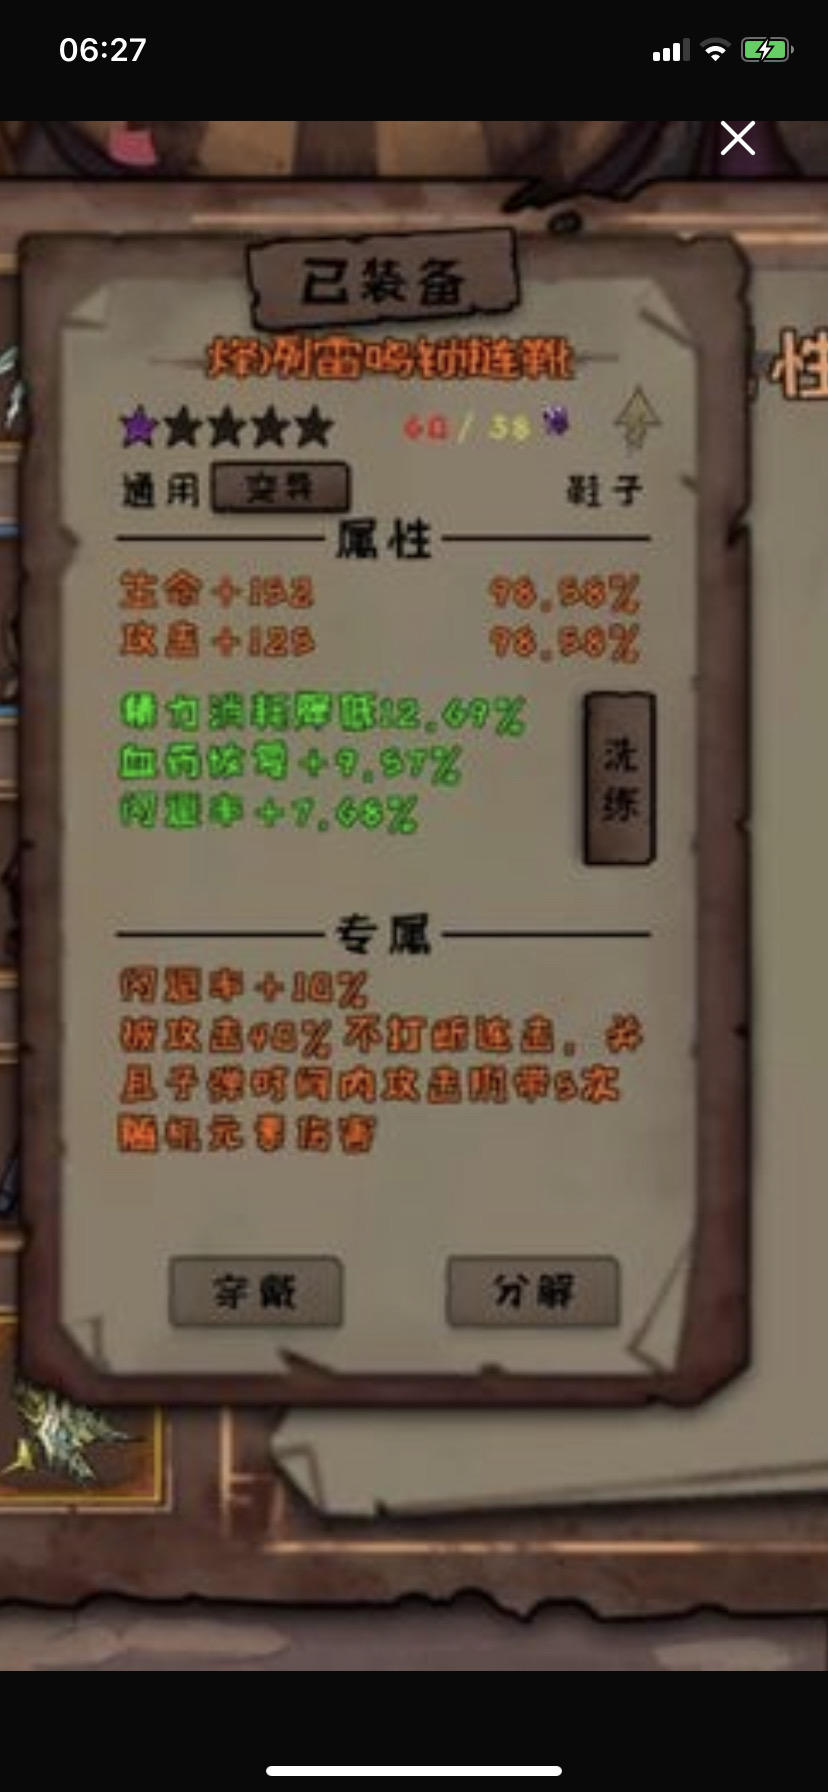 06:27
已装备
性
雷鸣锁链靴
60/38
通用
鞋子
属性
生命+152 98.58%
攻击+125 98.58%
精力消耗降低12.69%
血药恢复+9.57%
闪避率+7.68%
洗练
专属
闪避率+10%
被攻击40%不打断连击，并
且子弹时间内攻击附带5次
随机元素伤害
穿戴
分解